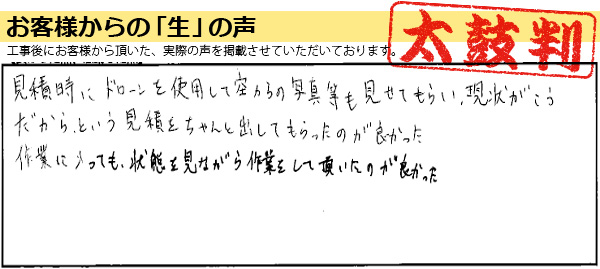 お客様からの「生」の声
太鼓判
工事後にお客様から頂いた、実際の声を掲載させていただいております。
見積時にドローンを使用して空からの写真等も見せてもらい、現状がこう
だから、という見積をちゃんと出してもらったのが良かった
作業に入っても、状態を見ながら作業をして頂いたのが良かった